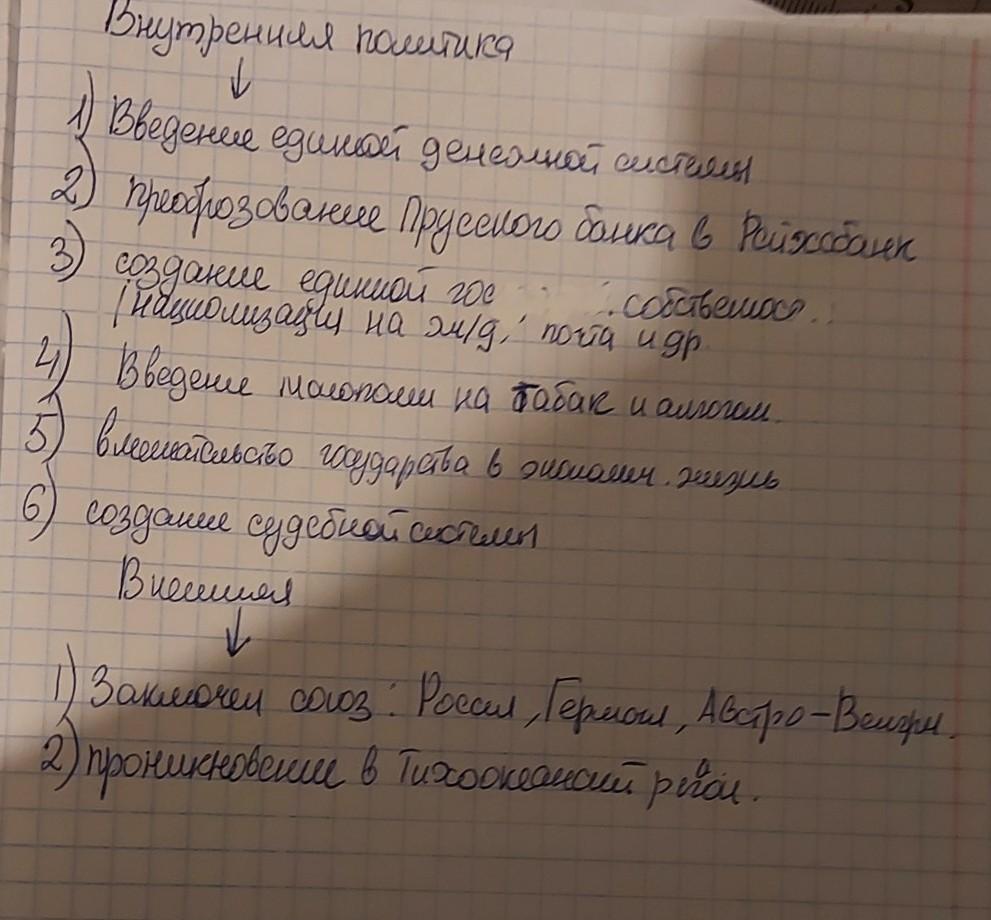 Внутренняя политика
↓
1) Введение единой денежной системы
2) преоброзование Прусского банка в Рейхсбанк
3) создание единной гос собственос
(национлизаци на ж/д, почта и др.
4) Введение монополи на табак и алкогол.
5) вмешательство государства в экономич. жизнь
6) создание судебной системы
Внешняя
↓
1) Заключен союз: Россия, Германия, Австро-Венгри.
2) проникновение в Тихоокеанский регион.